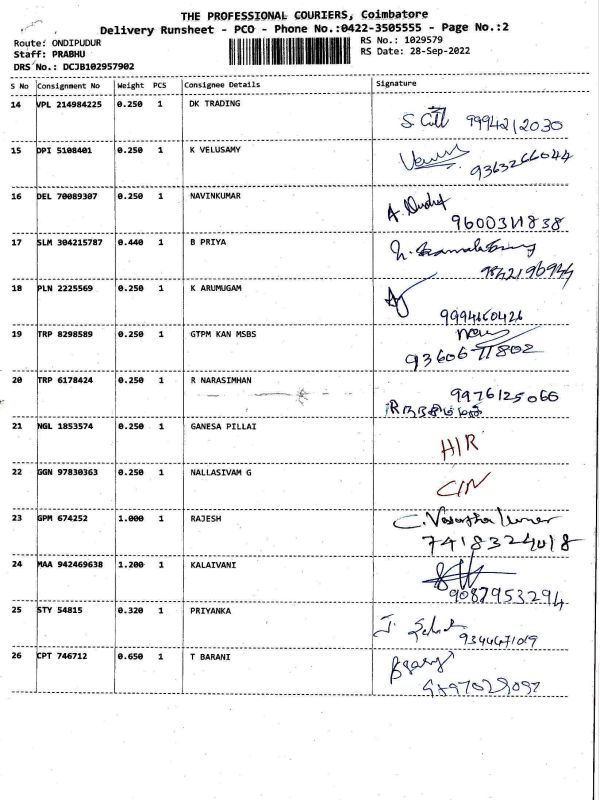 THE PROFESSIONAL COURIERS, Coimbatore
Delivery Runsheet - PCO - Phone No.:0422-3505555 - Page No.:2
Route: ONDIPUDUR RS No.: 1029579
Staff: PRABHU RS Date: 28-Sep-2022
DRS No.: DCJB102957902
S No Consignment No Weight PCS Consignee Details Signature
14 VPL 214984225 0.250 1 DK TRADING
9994212030
15 DPI 5108401 0.250 1 K VELUSAMY
9363266044
16 DEL 70089307 0.250 1 NAVINKUMAR
A.
17 SLM 304215787 0.440 1 B PRIYA
9842196944
18 PLN 2225569 0.250 1 K ARUMUGAM
9994660426
19 TRP 8298589 0.250 1 GTPM KAN MSBS
20 TRP 6178424 0.250 1 R NARASIMHAN
9976125066
21 NGL 1853574 0.250 1 GANESA PILLAI
H/R
22 GGN 97830363 0.250 1 NALLASIVAM G
C/N
23 GPM 674252 1.000 1 RAJESH
7418324018
24 MAA 942469638 1.200 1 KALAIVANI
9087953294
25 STY 54815 0.320 1 PRIYANKA
26 CPT 746712 0.650 1 T BARANI